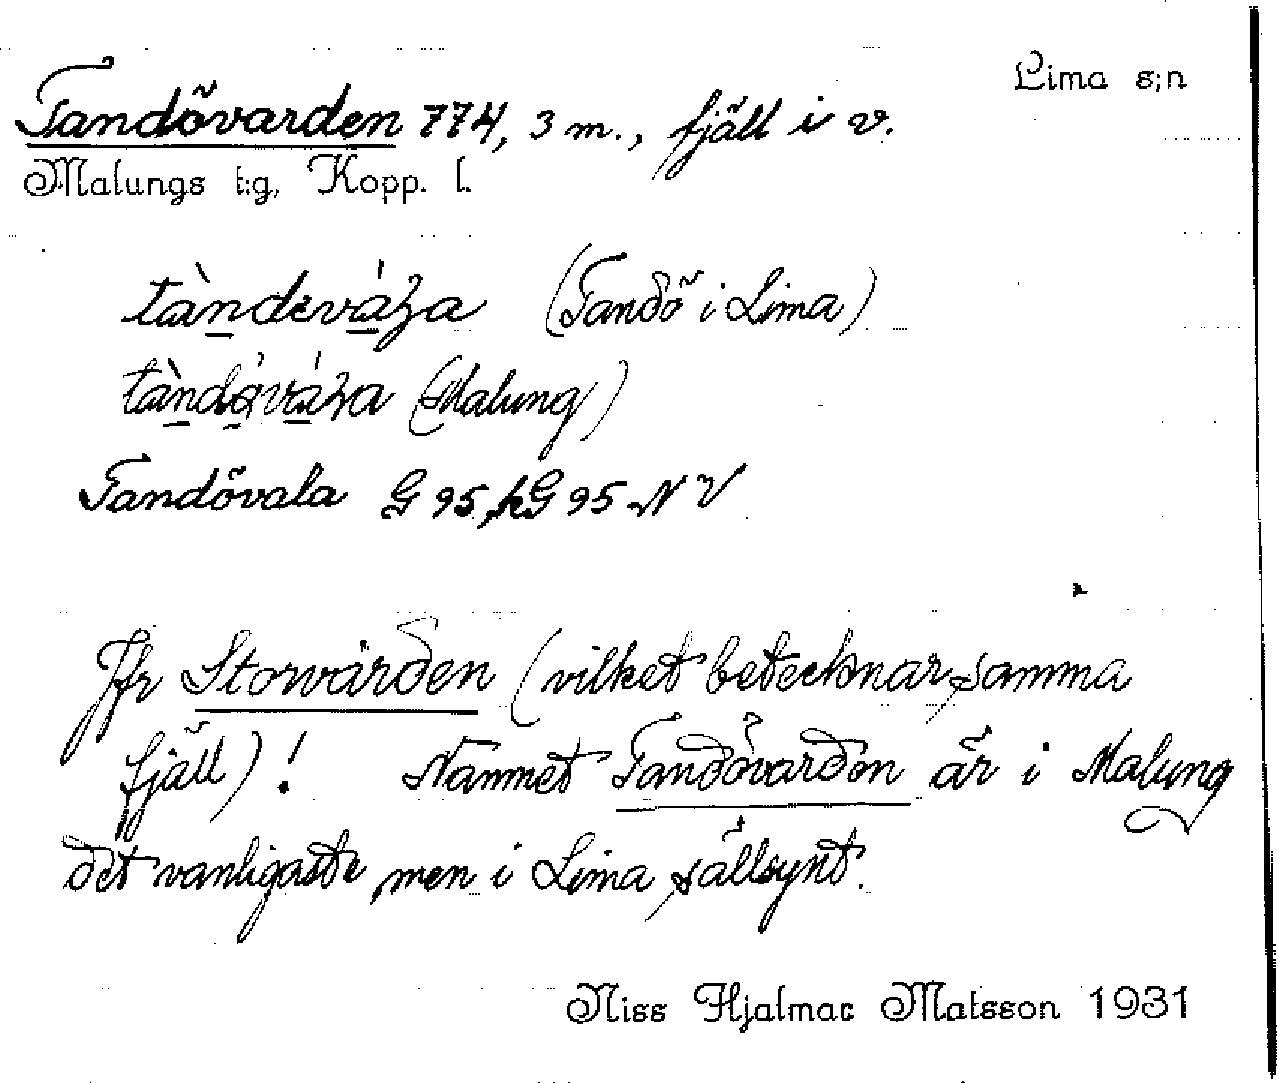 Lima s:n
Tandövarden 774,3 m., fjäll i v.
Malungs t:g, Kopp. l.
(Tandö i Lima)
(Malung)
Tandövala G 95, hG 95 NV
Jfr Storvarden (vilket betecknar samma
fjäll)! Namnet Tandövarden är i Malung
det vanligaste men i Lima sällsynt.
Niss Hjalmar Matsson 1931